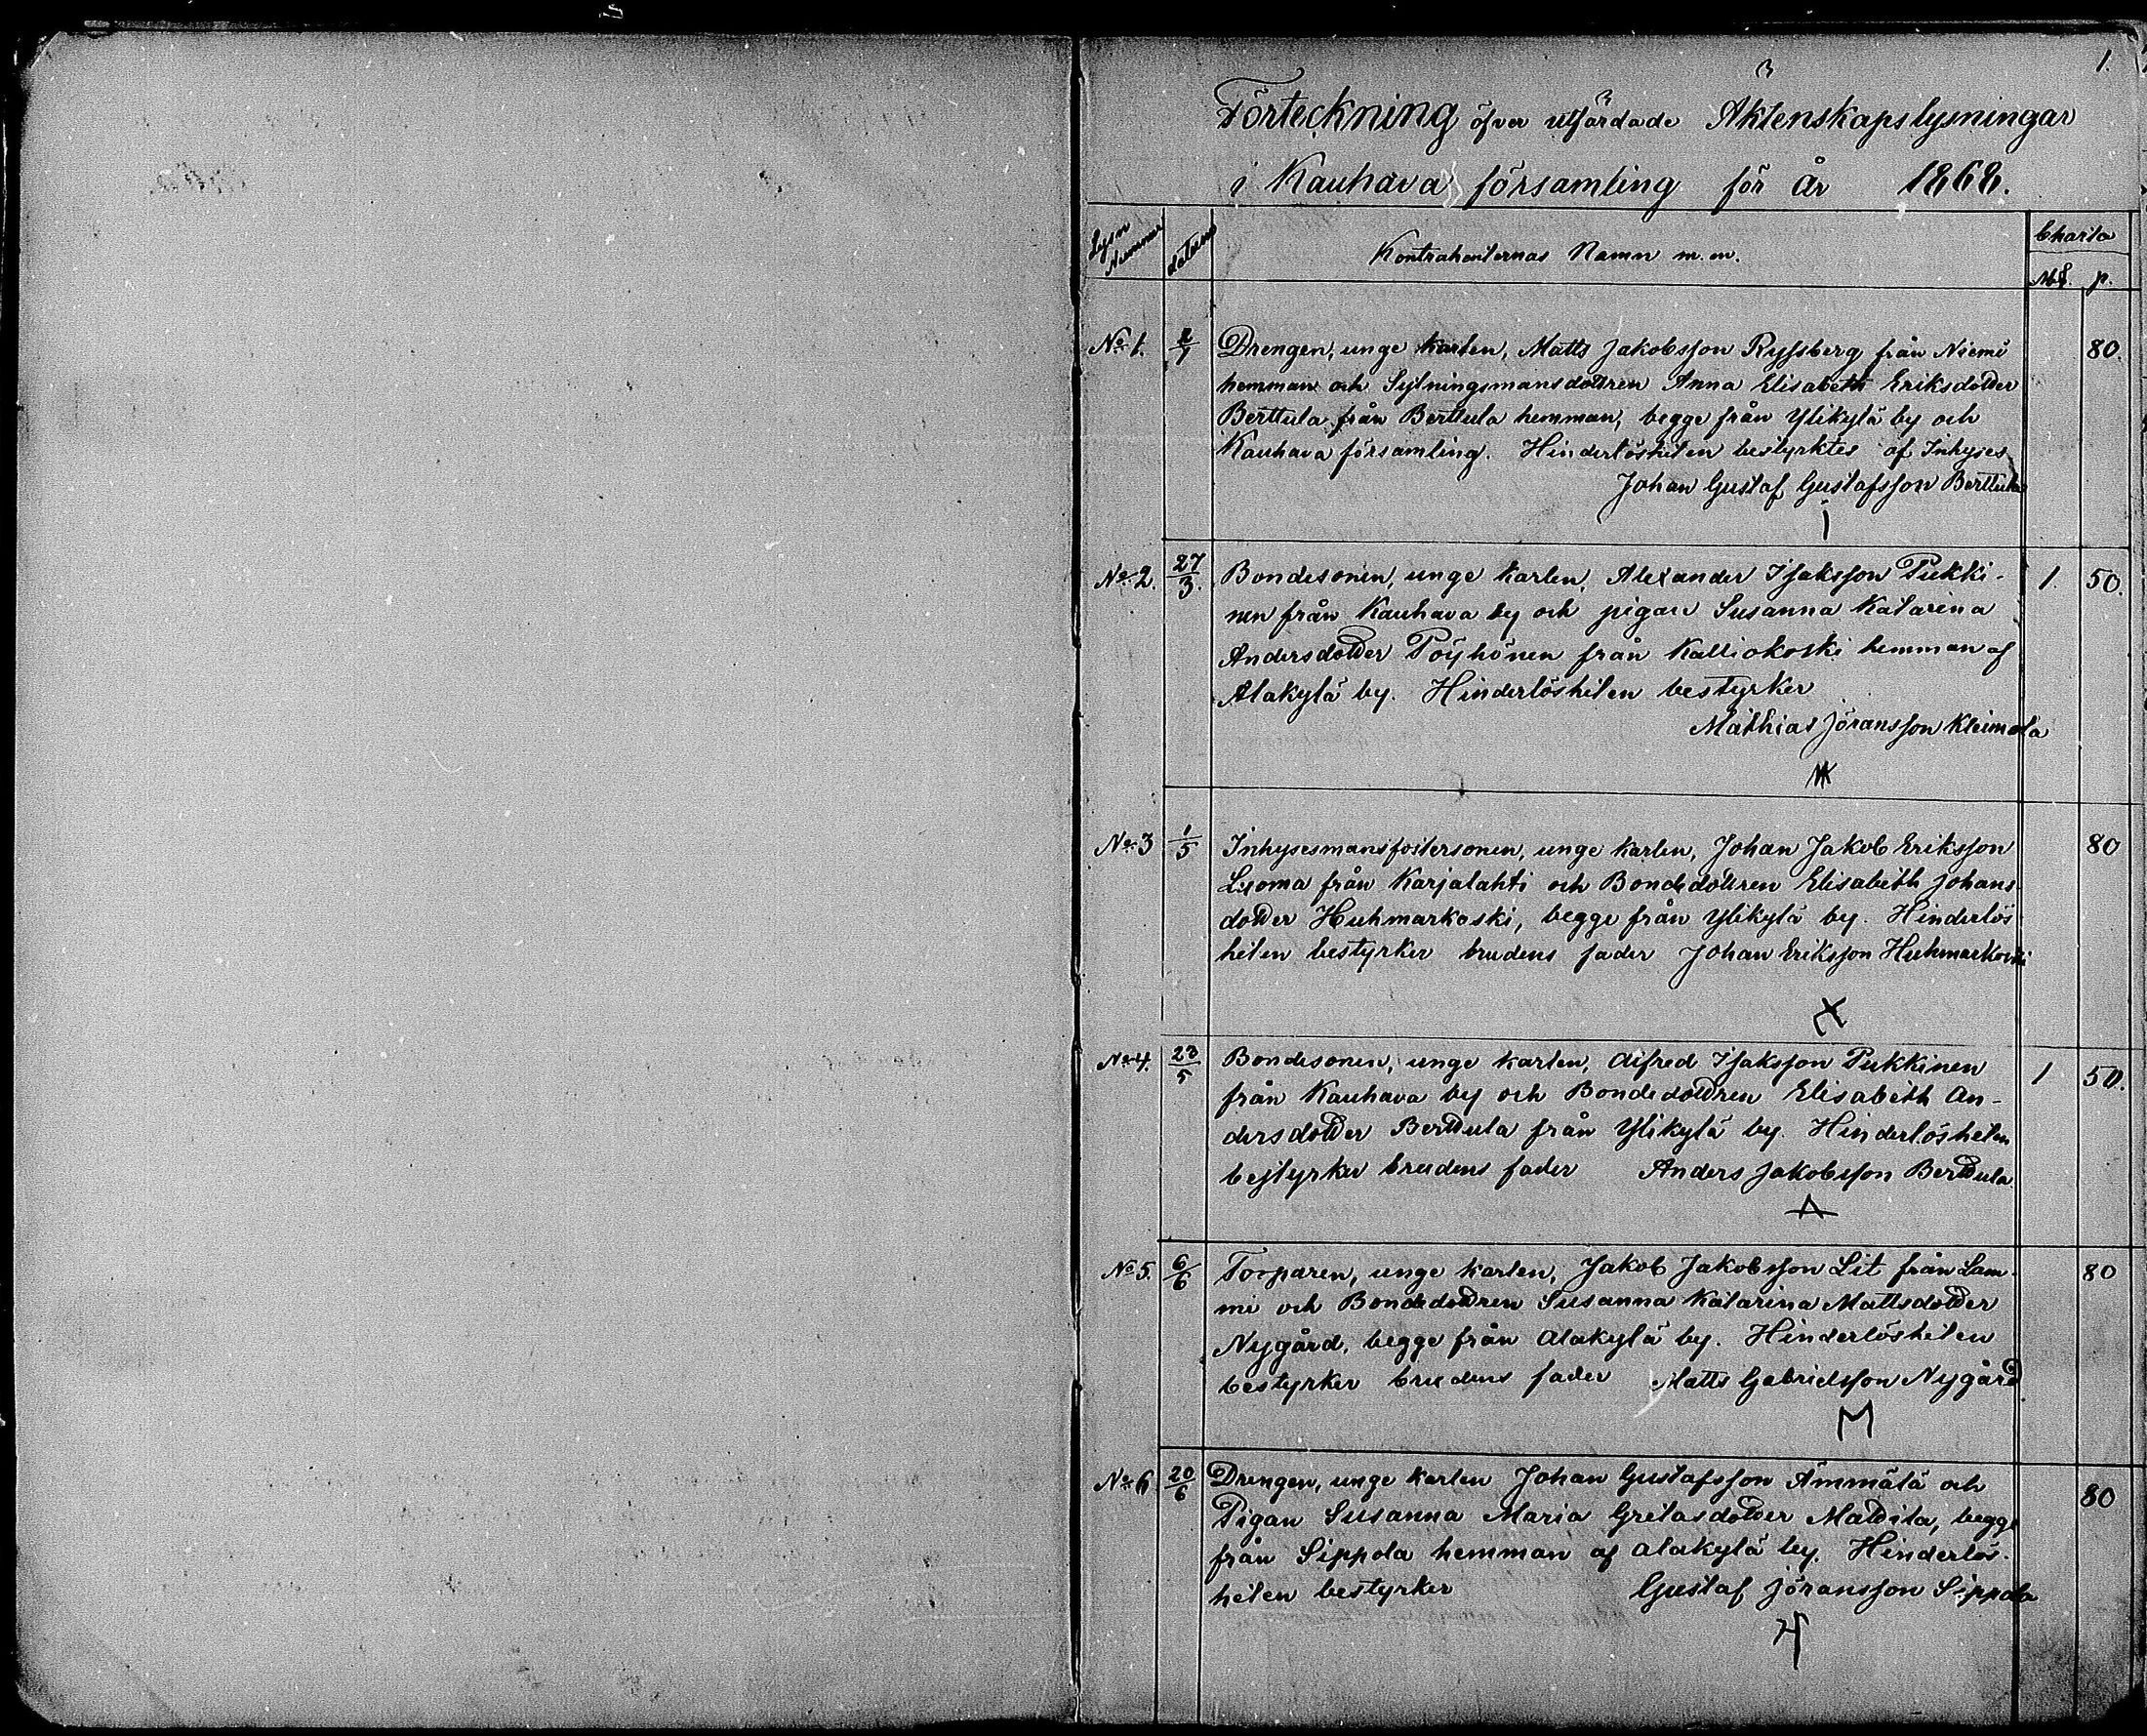 1.
Förteckning öfver utfärdade Äktenskapslysningar
i Kauhava församling för år 1868.
Lysn Nummer datum Kontrahenternas Namn m.m. Charta
Mk. p.
No 1. 2/1 Drengen, unge karlen, Matts Jakobsson Ryssberg från Niemi 80.
hemman och Sytningsmansdottren Anna Elisabeth Eriksdotter
Berttula från Berttula hemman, begge från Ylikylä by och
Kauhava församling. Hinderlösheten bestyrktes af Inhyses
Johan Gustaf Gustafsson Berttula
No 2. 27/3. Bondesonen, unge karlen, Alexander Isaksson Pukki- 1. 50.
nen från Kauhava by och pigan Susanna Katarina
Andersdotter Pöyhönen från Kalliokoski hemman af
Alakylä by. Hinderlösheten bestyrker
Mathias Jöransson Kleimola
No 3 1/5 Inhysesmansfostersonen, unge karlen, Johan Jakob Eriksson 80
Luoma från Karjalahti och Bondedottren Elisabeth Johans
dotter Huhmarkoski, begge från Ylikylä by. Hinderlös
heten bestyrker brudens fader Johan Eriksson Huhmarkoski
X
No 4. 23/5 Bondesonen, unge karlen, Alfred Isaksson Pukkinen 1 50.
från Kauhava by och Bondedottren Elisabeth An-
dersdotter Berttula från Ylikylä by. Hinderlösheten
bestyrker brudens fader Anders Jakobsson Berttula
A
No 5. 6/6 Torparen, unge karlen, Jakob Jakobsson Lit från Lam- 80
mi och Bondedottren Susanna Katarina Mattsdotter
Nygård, begge från Alakylä by. Hinderlösheten
bestyrker brudens fader Matts Gabrielsson Nygård
M
No 6 20/6 Drengen, unge karlen Johan Gustafsson Ämmälä och 80
Pigan Susanna Maria Gretasdotter Mattila, begge
från Sippola hemman af Alakylä by. Hinderlös-
heten bestyrker Gustaf Jöransson Sippola